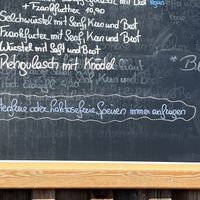 mit Brot Vegan
+ Frankfurther 10,90
Selchwürstel mit Senf, Kren und Brot
Frankfurter mit Senf, Kren und Brot
Würstel mit Saft und Brot
Rehgulasch mit Knödel
* B
und Brot
glutenfreie oder laktosefreie Speisen immer anfragen